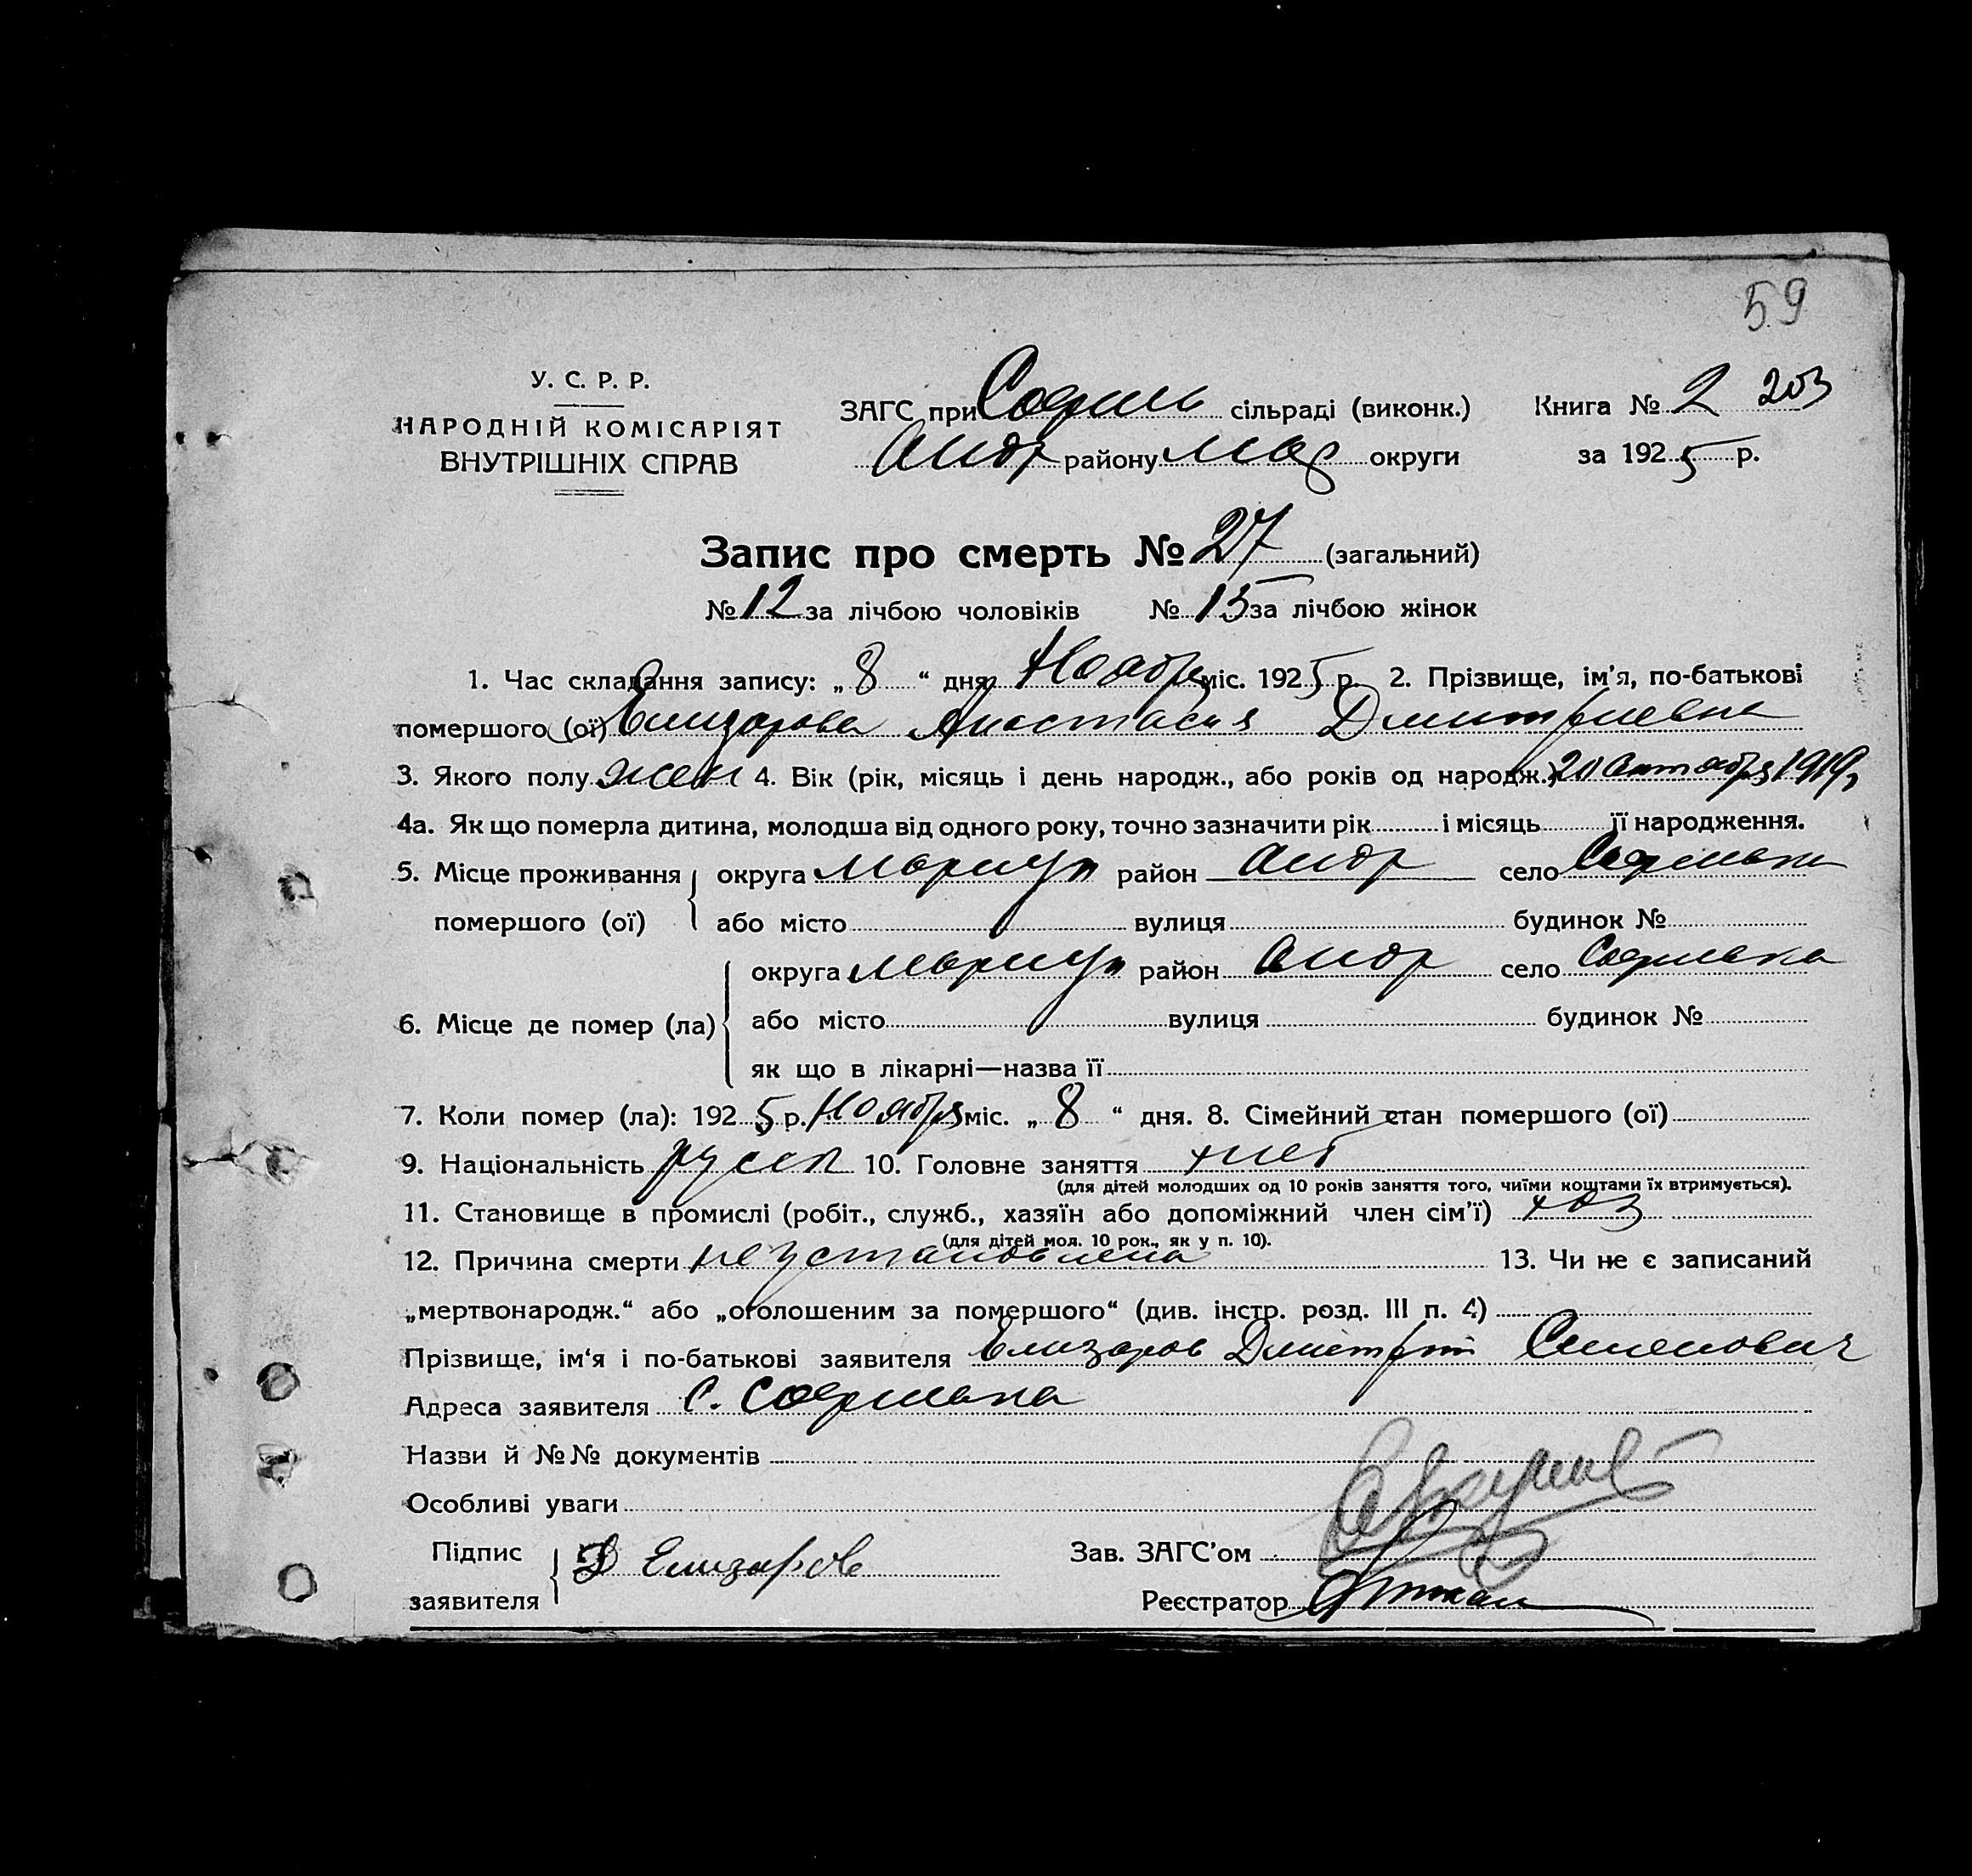 59
У. С. Р. Р.
НАРОДНІЙ КОМІСАРІЯТ
ВНУТРІШНІХ СПРАВ
ЗАГС при Софии сільраді (виконк.) Книга № 2 203
Андр району Мар округи за 1925 р.
Запис про смерть № 27 (загальний)
№ 12 за лічбою чоловіків № 15 за лічбою жінок
1. Час складання запису: „ 8 “ дня Ноября міс. 1925 р. 2. Прізвище, ім’я, по-батькові
помершого (ої) Елизарова Анастасия Дмитриевна
3. Якого полу жен 4. Вік (рік, місяць і день народж., або років од народж.) 20 Октября 1919
4а. Як що померла дитина, молодша від одного року, точно зазначити рік і місяць її народження.
5. Місце проживання округа Мариуп район Андр село Софиевка
помершого (ої) або місто вулиця будинок №
округа Мариуп район Андр село Софиевка
6. Місце де помер (ла) або місто вулиця будинок №
як що в лікарні—назва її
7. Коли помер (ла): 1925 р. Ноября міс. „ 8 “ дня. 8. Сімейний стан помершого (ої)
9. Національність русск 10. Головне заняття хлеб
(для дітей молодших од 10 років заняття того, чиїми коштами їх втримується).
11. Становище в промислі (робіт., служб., хазяїн або допоміжний член сім’ї) хоз
(для дітей мол. 10 рок., як у п. 10).
12. Причина смерти не установлена 13. Чи не є записаний
„мертвонародж.“ або „оголошеним за помершого“ (див. інстр. розд. III п. 4)
Прізвище, ім’я і по-батькові заявителя Елизаров Дмитрий Семенович
Адреса заявителя с. Софиевка
Назви й №№ документів
Особливі уваги
Підпис Д Елизаров Зав. ЗАГС’ом
заявителя Реєстратор